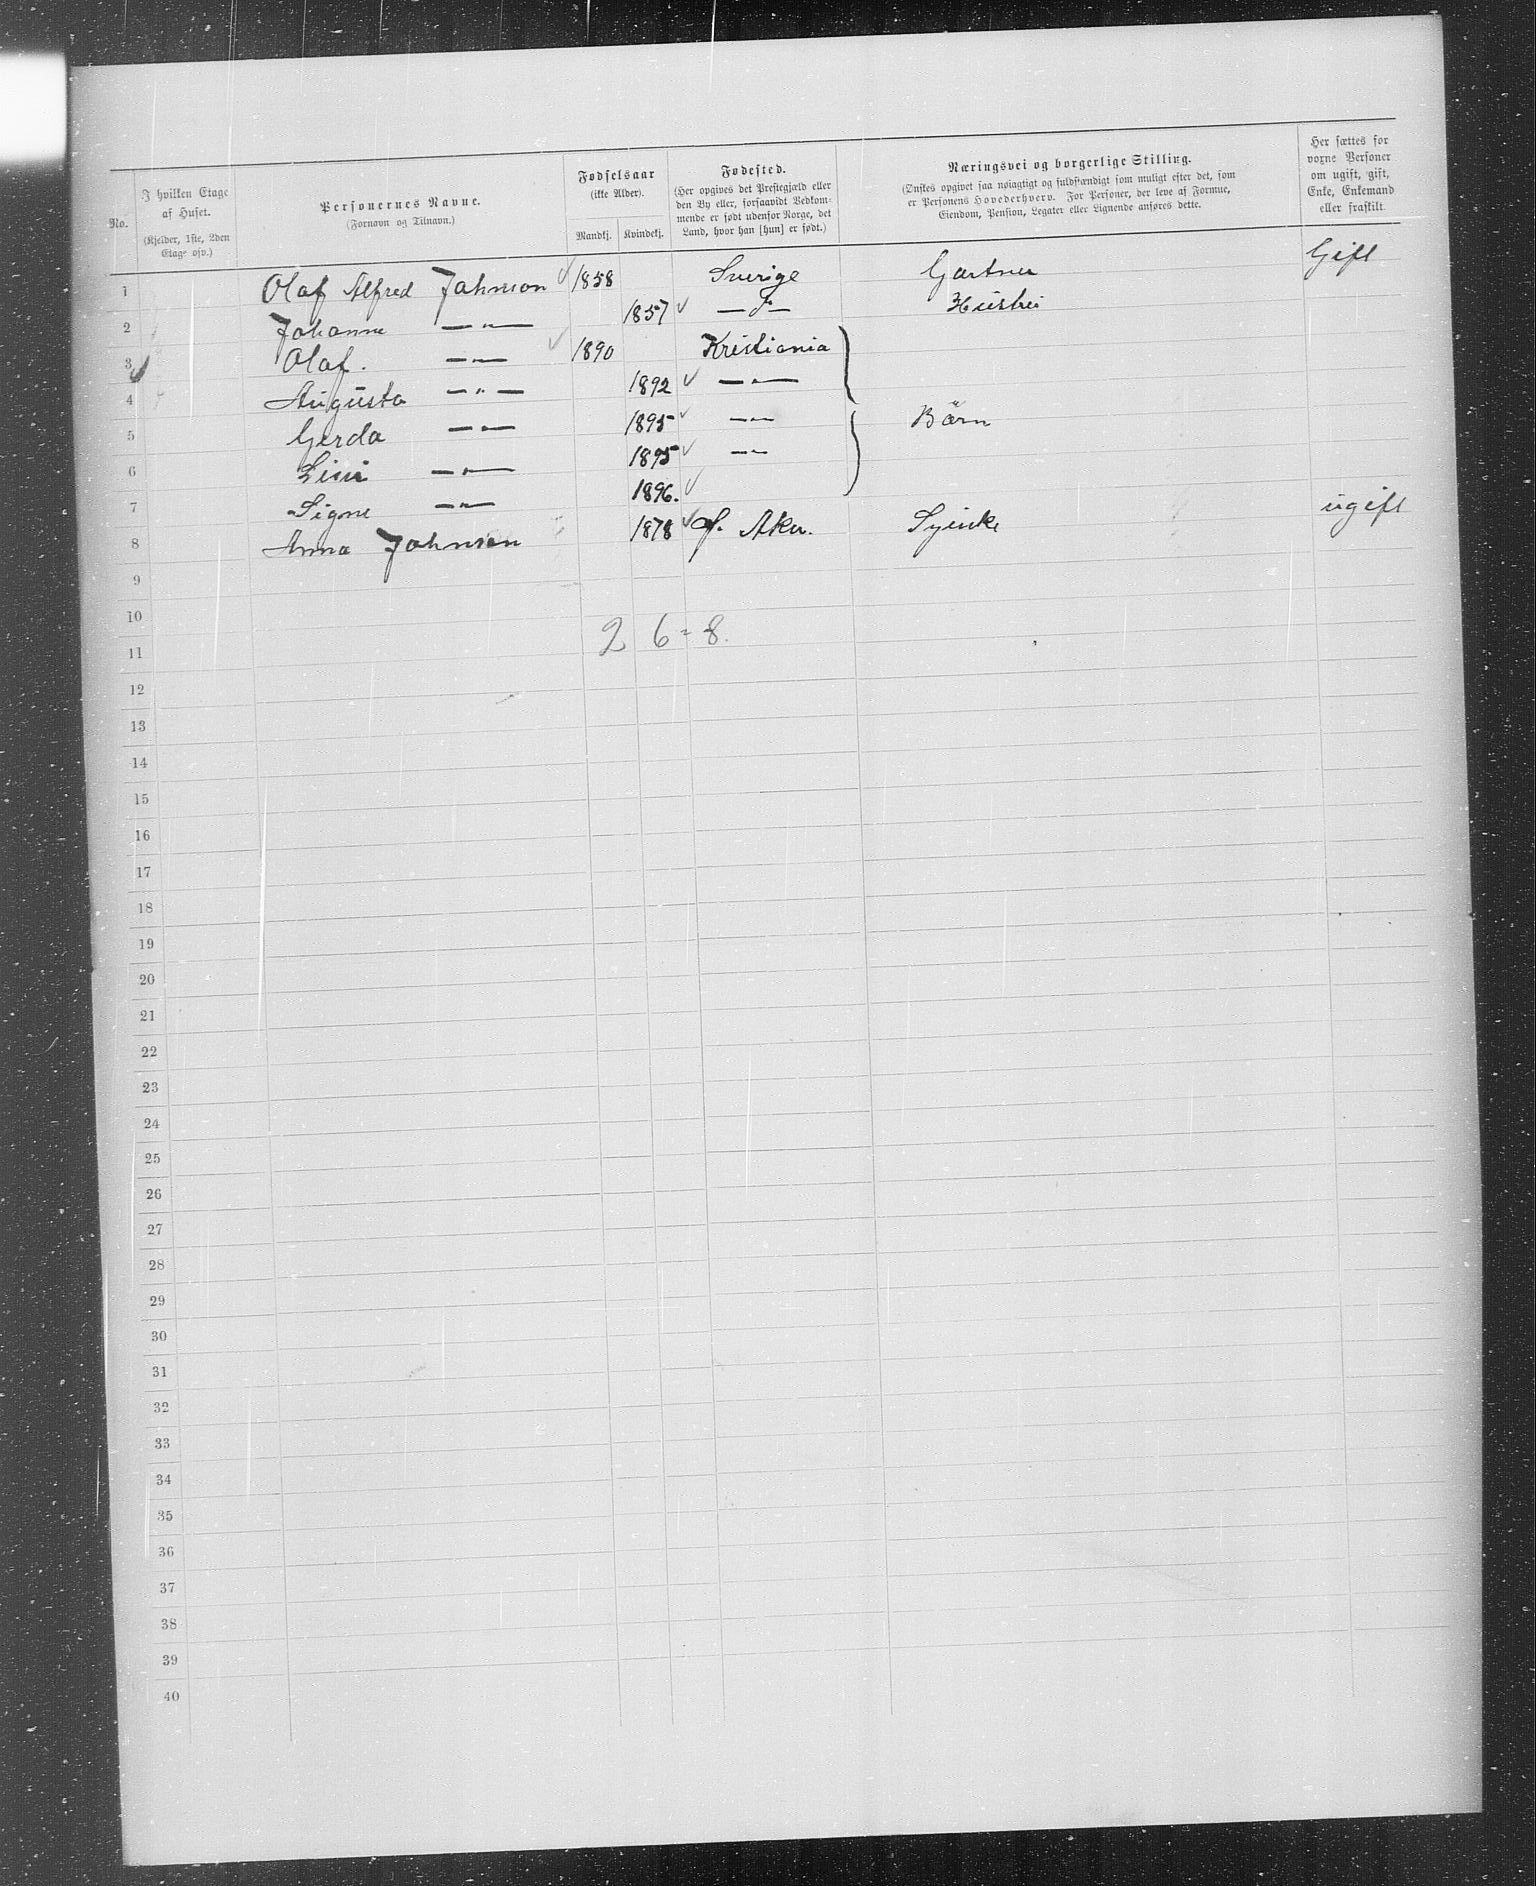 No.
I hvilken Etage af Huset. (Kjelder, 1ste, 2den Etage osv.)
Personernes Navne. (Fornavn og Tilnavn.)
Fødselsaar (ikke Alder). Mandkj. Kvindekj.
Fødested. (Her opgives det Prestegjæld eller den By eller, forsaavidt Vedkommende er født udenfor Norge, det Land, hvor han [hun] er født.)
Næringsvei og borgerlige Stilling. (Ønskes opgivet saa nøiagtigt og fuldstændigt som muligt efter det, som er Personens Hovederhverv. For Personer, der leve af Formue, Eiendom, Pension, Legater eller Lignende anføres dette.
Her sættes for voxne Personer om ugift, gift, Enke, Enkemand eller fraskilt
1 Olaf Alfred Johnson 1858 Sverige Gartner Gift
2 Johanne —"— 1857 —"— Hustru
3 Olaf. —"— 1890 Kristiania
4 Augusta —"— 1892 —"—
5 Gerda —"— 1895 —"— Börn
6 —"— 1895 —"—
7 Signe —"— 1896.
8 Anna Johnson 1878 Aker. Syerske ugift
9
10
11 2 6 = 8.
12
13
14
15
16
17
18
19
20
21
22
23
24
25
26
27
28
29
30
31
32
33
34
35
36
37
38
39
40